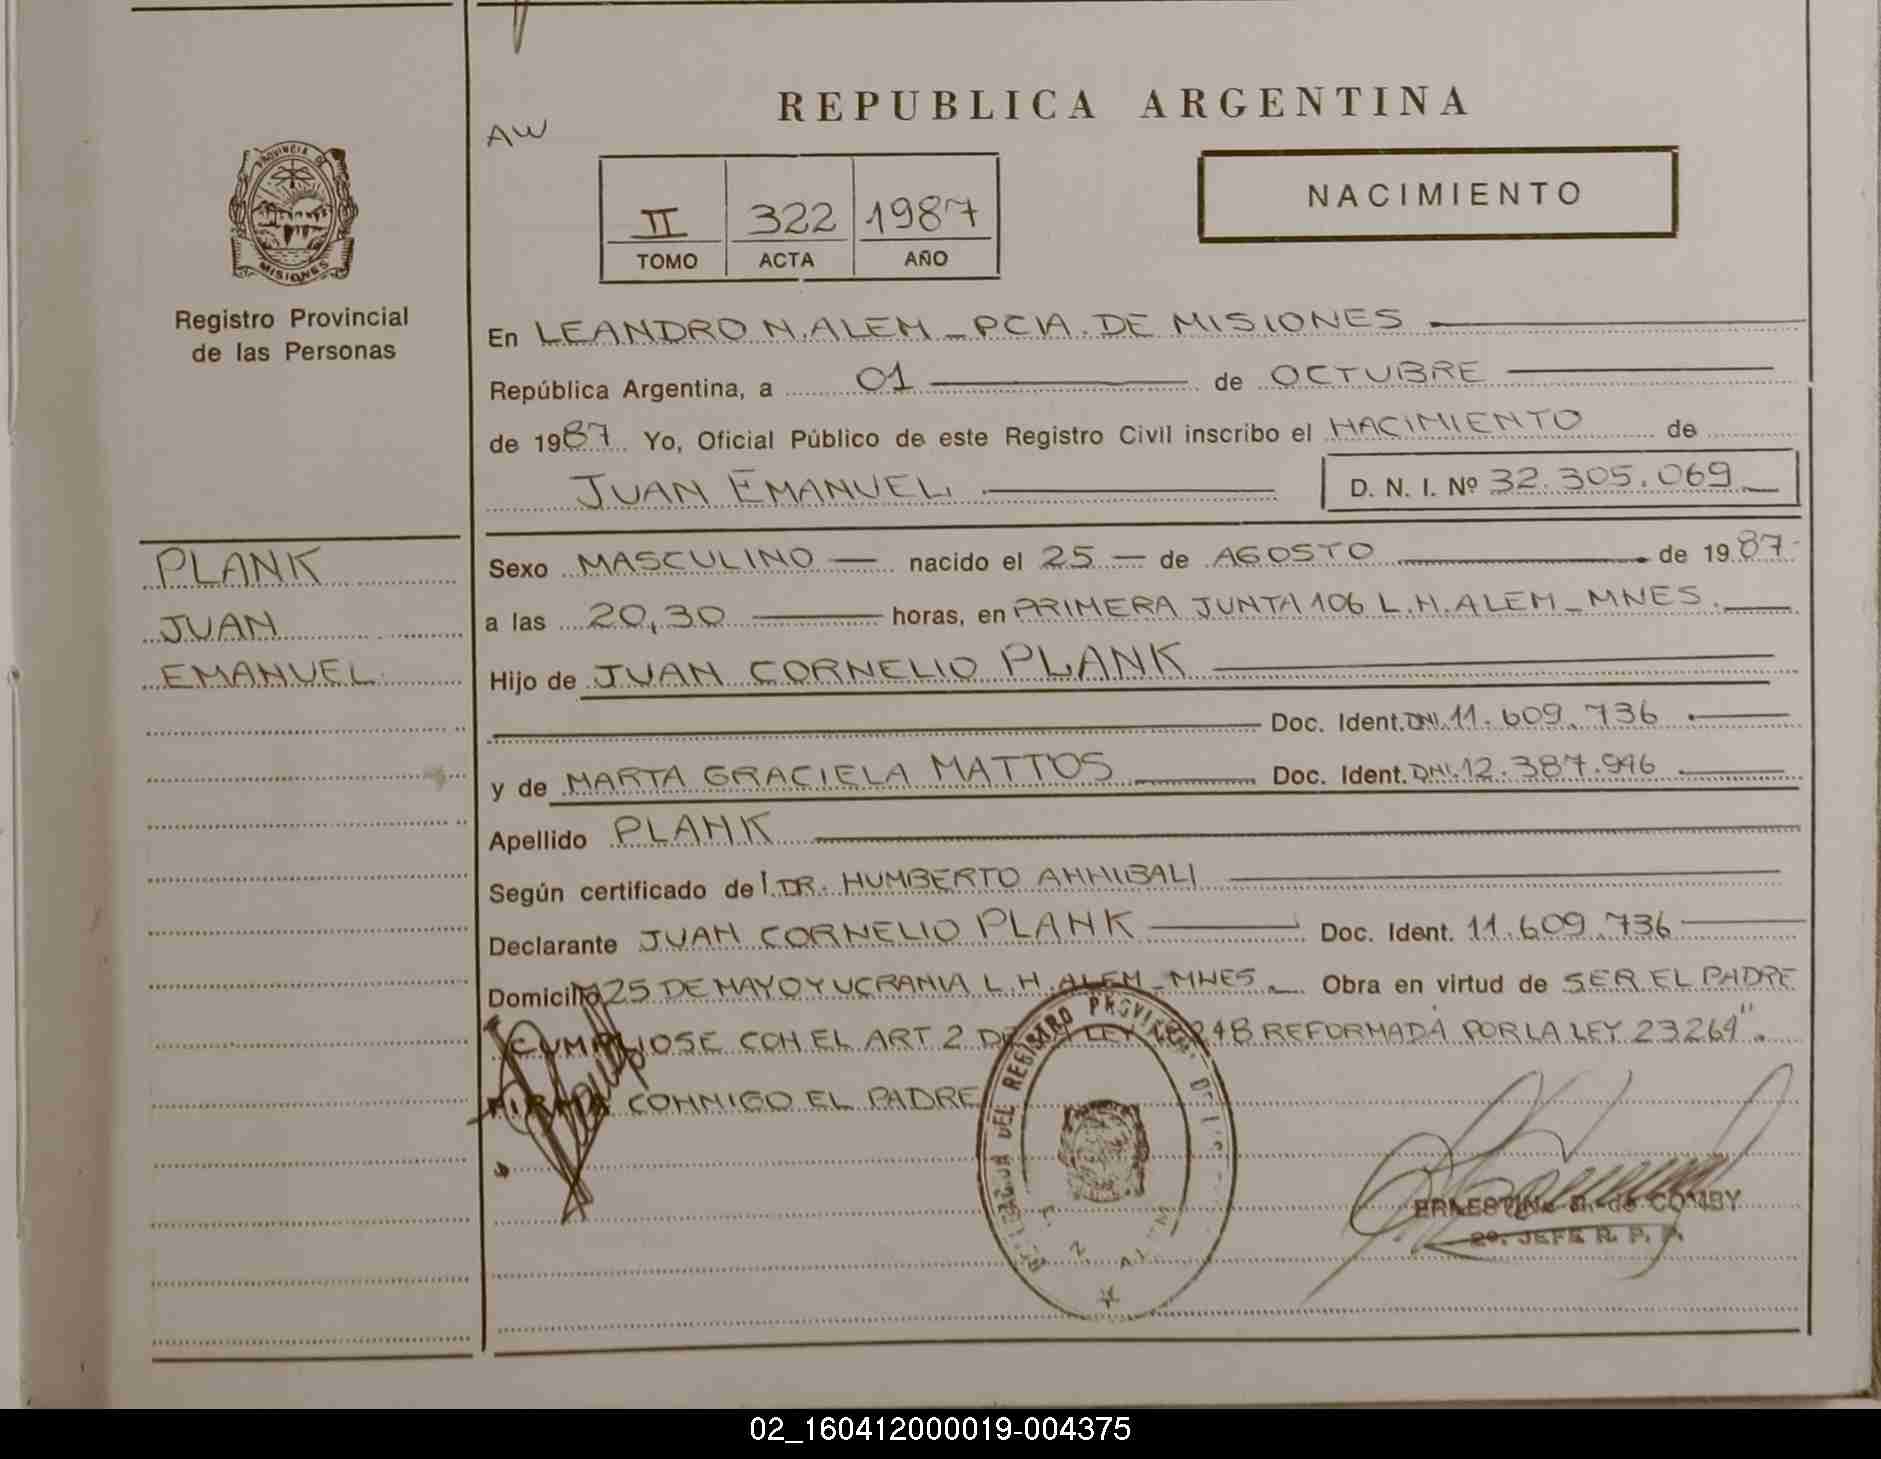 REPUBLICA ARGENTINA
AW
II 322 1987
TOMO ACTA AÑO
NACIMIENTO
PROVINCIA DE
MISIONES
Registro Provincial
de las Personas
PLANK
JUAN
EMANUEL
En LEANDRO N. ALEM - PCIA. DE MISIONES
República Argentina, a 01 de OCTUBRE
de 1987 Yo, Oficial Público de este Registro Civil inscribo el NACIMIENTO de
JUAN EMANUEL D. N. I. Nº 32.305.069
Sexo MASCULINO nacido el 25 de AGOSTO de 1987
a las 20,30 horas, en PRIMERA JUNTA 106 L.N. ALEM - MNES.
Hijo de JUAN CORNELIO PLANK
Doc. Ident. DNI. 11.609.736
y de MARTA GRACIELA MATTOS Doc. Ident. DNI. 12.387.946
Apellido PLANK
Según certificado del DR. HUMBERTO ANNIBALI
Declarante JUAN CORNELIO PLANK Doc. Ident. 11.609.736
Domicilio 25 DE MAYO Y UCRANIA L.N. ALEM - MNES. Obra en virtud de SER EL PADRE
CUMPLIOSE CON EL ART 2 DE LA LEY REFORMADA POR LA LEY 23264".
FIRMA CONMIGO EL PADRE
DEL REGISTRO PROVINCIAL DE LAS
ERNESTINA R. de COMBY
2º. JEFE R. P. P.
02_160412000019-004375